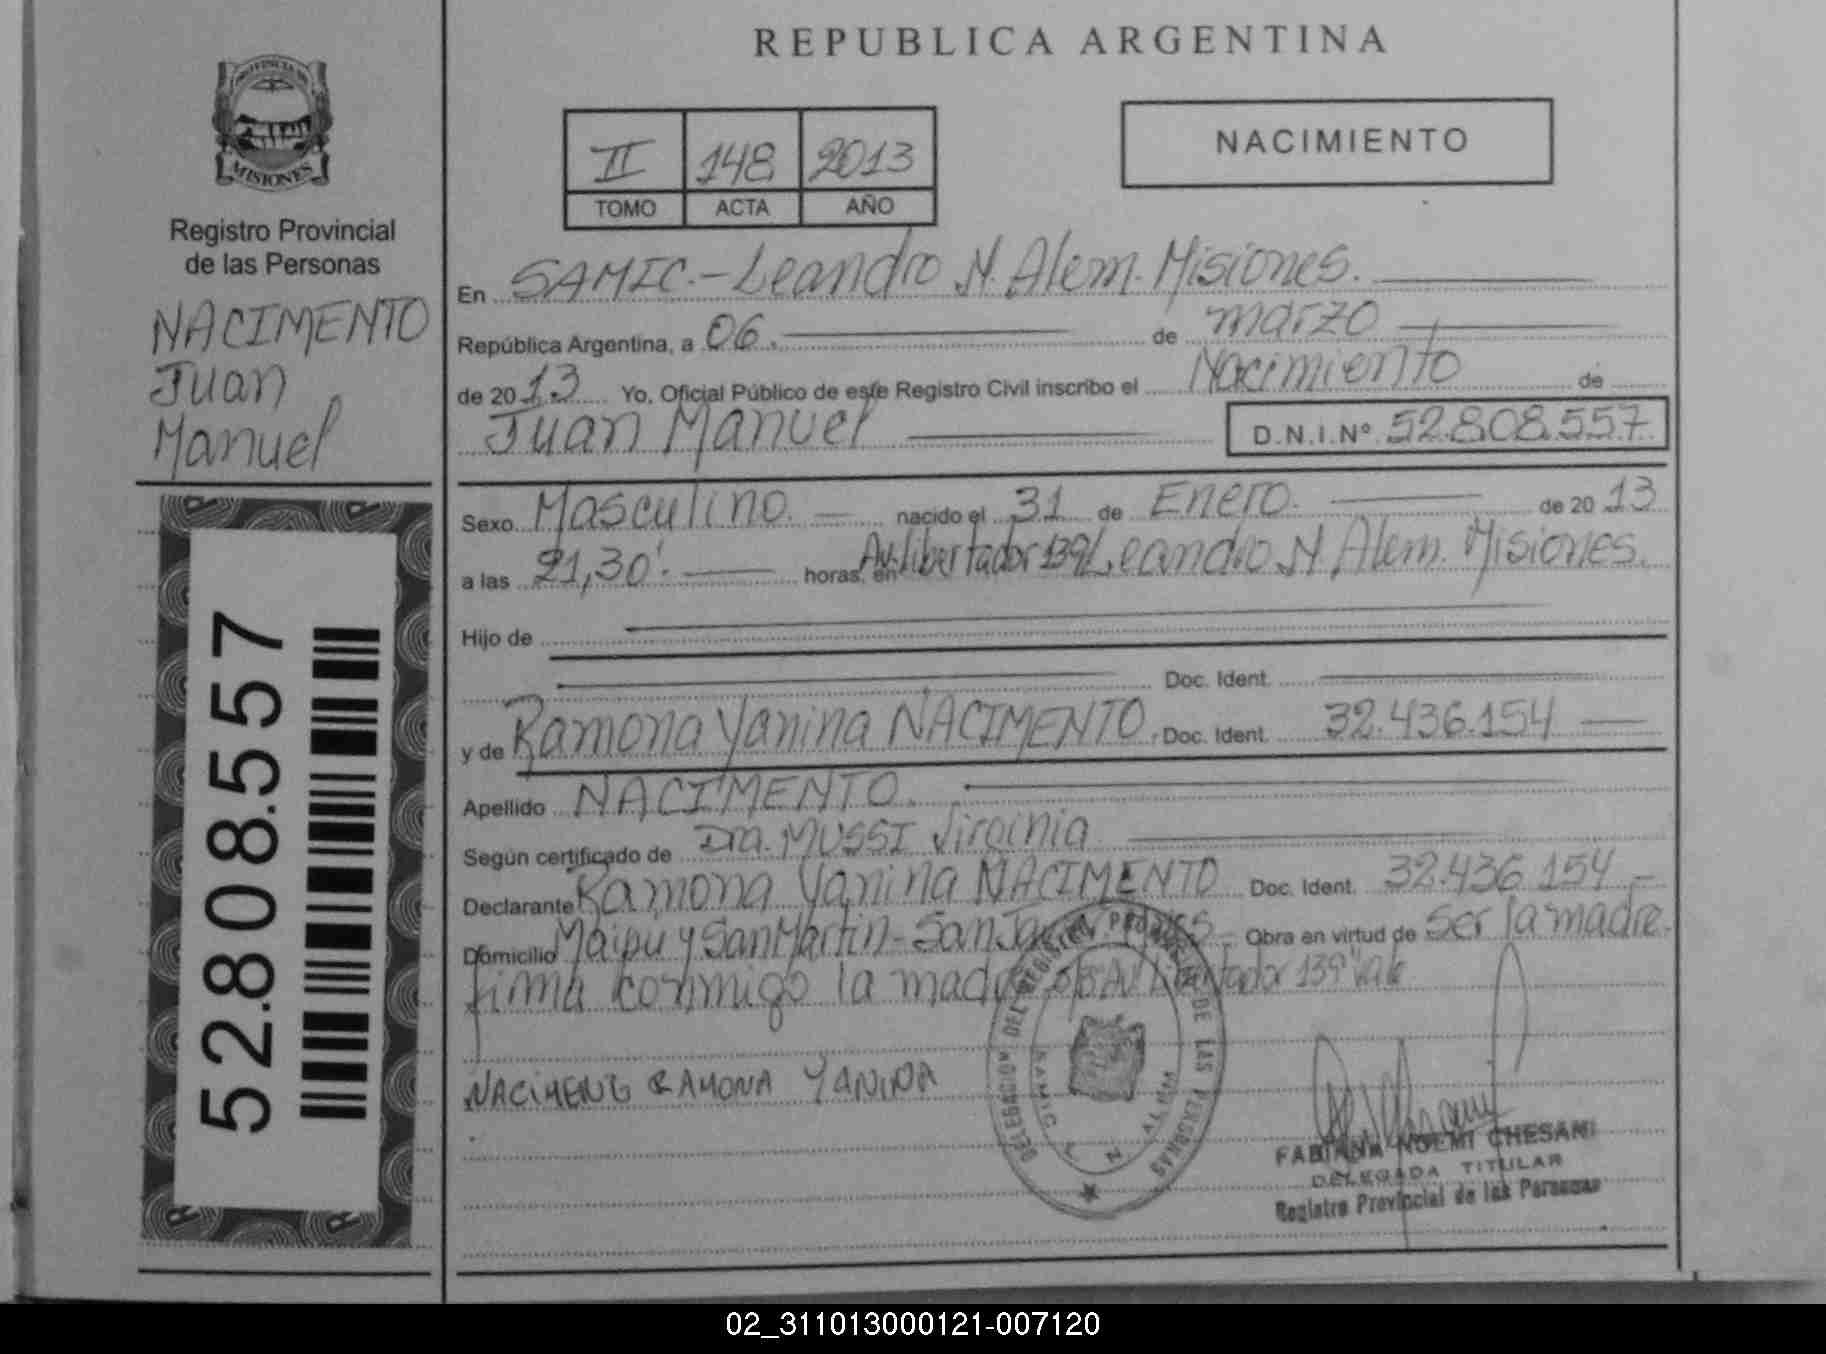 REPUBLICA ARGENTINA
PROVINCIA DE
MISIONES
Registro Provincial
de las Personas
NACIMENTO
Juan
Manuel
52.808.557
II 148 2013
TOMO ACTA AÑO
NACIMIENTO
En SAMIC.-Leandro N. Alem. Misiones.
República Argentina, a 06. de marzo
de 2013 Yo, Oficial Público de este Registro Civil inscribo el Nacimiento de
Juan Manuel D.N.I.Nº 52.808.557.
Sexo Masculino. nacido el 31 de Enero. de 2013
a las 21,30'. horas, en Av. Libertador 139 Leandro N. Alem. Misiones.
Hijo de
Doc. Ident.
y de Ramona Yanina NACIMENTO. Doc. Ident. 32.436.154
Apellido NACIMENTO.
Según certificado de Dra. MUSSI Virginia
Declarante Ramona Yanina NACIMENTO Doc. Ident. 32.436.154
Domicilio Maipu y San Martin - San Obra en virtud de ser la madre.
firma conmigo la madre Av. Libertador 139 Vale
NACIMENTO RAMONA YANINA
DELEGACION DEL REGISTRO PROVINCIAL DE LAS PERSONAS
SAMIC L. N.
FABIANA NOEMI CHESANI
DELEGADA TITULAR
Registro Provincial de las Personas
02_311013000121-007120